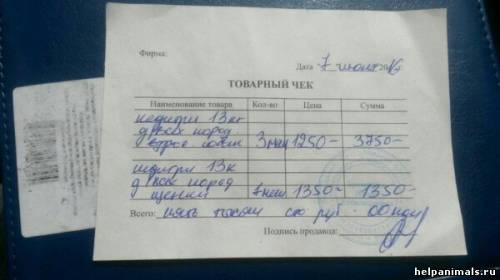 Фирма:
Дата 7 июня 2016
ТОВАРНЫЙ ЧЕК
Наименование товара Кол-во Цена Сумма
13кг
всех пород
3меш 1250- 3750-
13к
д всех пород
щенки 1меш 1350- 1350-
Всего: пять тысяч сто руб. 00 коп
Подпись продавца:
helpanimals.ru